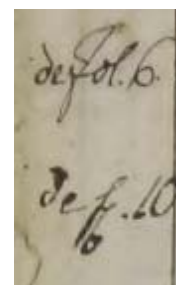 de fol. 6.
de f. 10